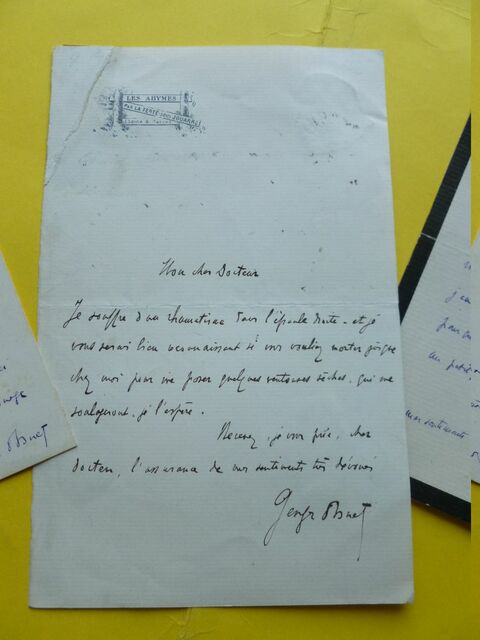 LES ABYMES
PAR LA FERTE-SOUS-JOUARRE
(Seine & Marne)
Mon cher Docteur
Je souffre d'un rhumatisme dans l'épaule droite - et je
vous serai bien reconnaissant si vous vouliez monter jusque
chez moi pour me poser quelques ventouses sèches, qui me
soulageront, je l'espère.
Recevez, je vous prie, cher
docteur, l'assurance de mes sentiments très dévoués
Georges Ohnet
Ohnet